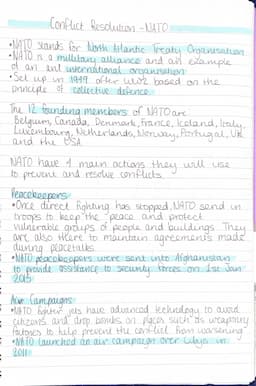 Conflict Resolution - NATO
• NATO stands for North Atlantic Treaty Organisation
• NATO is a military alliance and an example
of an int international organisation
• Set up in 1949 after WW2 based on the
principle of collective defence.
The 12 founding members of NATO are
Belgium, Canada, Denmark, France, Iceland, Italy,
Luxembourg, Netherlands, Norway, Portugal, UK
and the USA
NATO have 4 main actions they will use
to prevent and resolve conflicts.
Peacekeepers
• Once direct fighting has stopped, NATO send in
troops to keep the peace and protect
vulnerable groups of people and buildings. They
are also there to maintain agreements made
during peacetalks
• NATO peacekeepers were sent into Afghanistan
to provide assistance to security forces on 1st Jan
2015
Air Campaigns
• NATO fighter jets have advanced technology to avoid
citizens and drop bombs on places such as weaponry
factories to help prevent the conflict from worsening
• NATO launched an air campaign over Libya in
2011